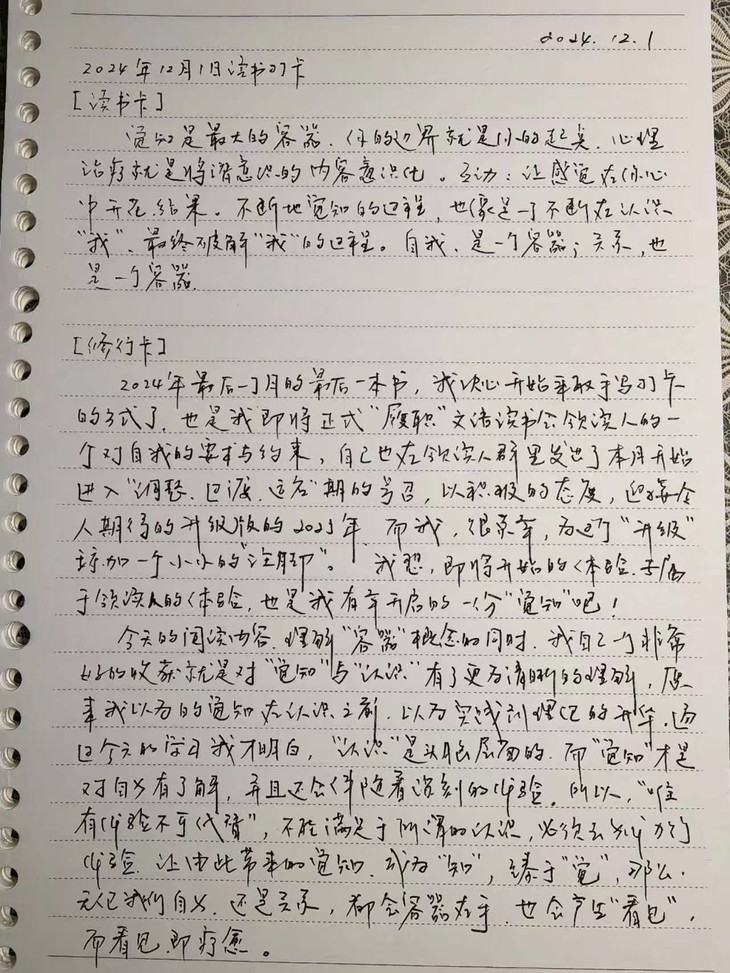 2024.12.1
2024年12月1日读书习卡
[读书卡]
觉知是最大的容器。你的边界就是你的起点。心理
治疗就是将潜意识的内容意识化。互动：让感觉在你心
中开花、结果。不断地觉知的过程，也像是一个不断在认识
“我”、最终破解“我”的过程。自我，是一个容器；关系，也
是一个容器。
[修行卡]
2024年最后一个月的最后一本书，我决心开始采取手写习卡
的方式了，也是我即将正式“履职”文语读书会领读人的一
个对自我的要求与约束，自己也在领读人群里发出了本月开始
进入“调整、过渡、适合”期的号召，以积极的态度，迎接令
人期待的升级版的2025年。而我，很荣幸，为这个“升级”
增加一个小小的“注脚”。我想，即将开始的体验，专属
于领读人的体验，也是我有幸开启的一分“觉知”吧！
今天的阅读内容，理解“容器”概念的同时，我自己一个非常
好的收获就是对“觉知”与“认识”有了更为清晰的理解，原
来我以为的觉知在认识之前，以为实践到理论的升华，通
过今天的学习我才明白，“认识”是头脑层面的，而“觉知”才是
对自我有了解，并且还会伴随着深刻的体验。所以，“唯
有体验不可代替”，不能满足于所谓的认识，必须去
体验，让由此带来的觉知，成为“知”，臻于“觉”，那么，
无论我们自我，还是关系，都会容器在手，也会产生“看见”，
而看见，即疗愈。